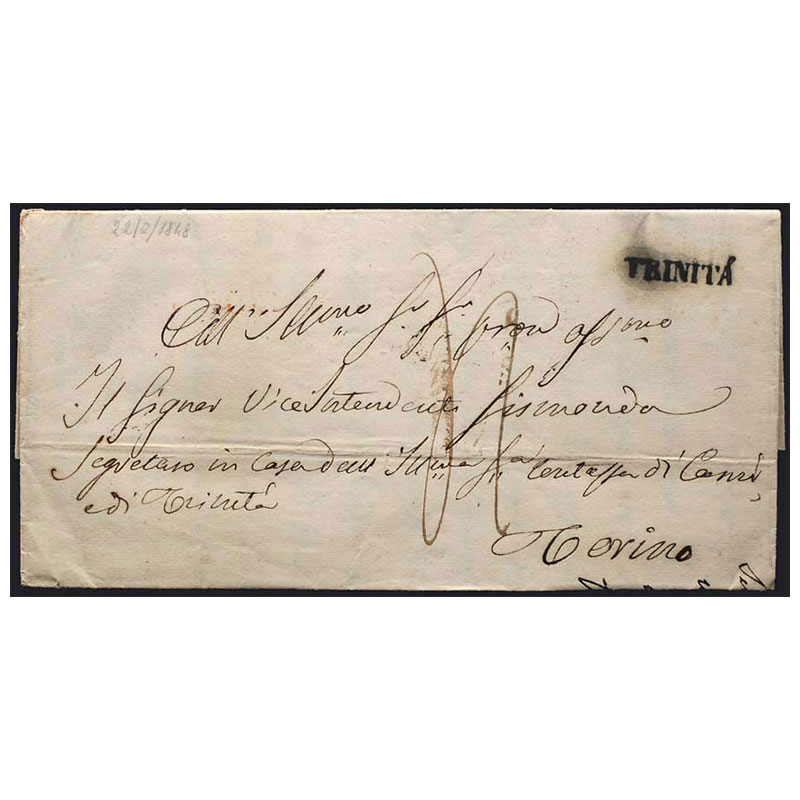 22/2/1848
TRINITÁ
All' Illmo Sr Sr Pron ossmo
Il Signor Vice Intendente Gismonda
Segretaro in Casa dell' Illma Sra Contessa di
e di Trinità
Torino